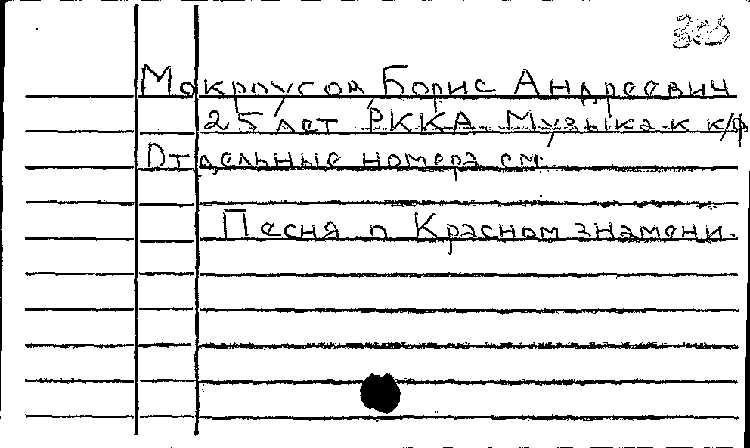 Мокроусов, Борис Андреевич
25 лет РККА. Музыка к к/ф
Отдельные номера см.
Песня о Красном знамени.